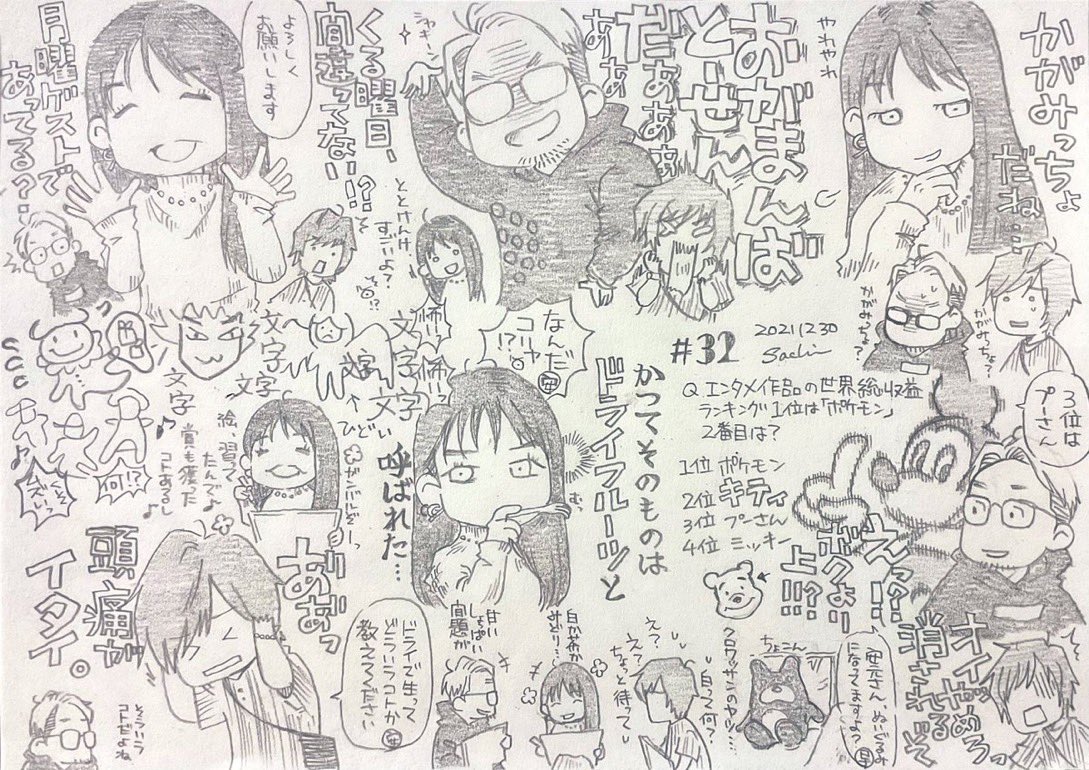 かがみっちょ
だね…
やれやれ
おがまんば
とーせん
だぁぁぁ
あぁあ
シャキーン
くる曜日、
間違ってない!!?
よろしく
お願いします
月曜ゲストで
あってる?!
ととけんけ
すごいよ?
かがみちょ?
かがみっちょ?
#32
20211230
Sachi
Q エンタメ作品の世界総収益
ランキング1位は「ポケモン」
2番目は?
1位 ポケモン
2位 キティ
3位 プーさん
4位 ミッキー
3位は
プーさん
えっ!!
ボクより
上!!?
オイッやめろっ
消されるって
なんだ
コリャ
!?
かつてそのものは
ドライフルーツと
呼ばれた…
怖い
怖い
文字
文字
文字
文字
文字
文字
ひどい
がんばるぞーっ
絵、習って
たんで♪
賞も獲った
コトあるし♪
何!?
ムズいっ
ああっ
頭痛が
イタイ。
ドライで生って
どういうコトか
教えてください
甘い
しょっぱい
問題が
白か茶か
みどり…
え?
え?
ちょっと待って
白って何?
ちょこん
「安元さん、ぬいぐるみ
になってますよ?」
そういう
コトだよね